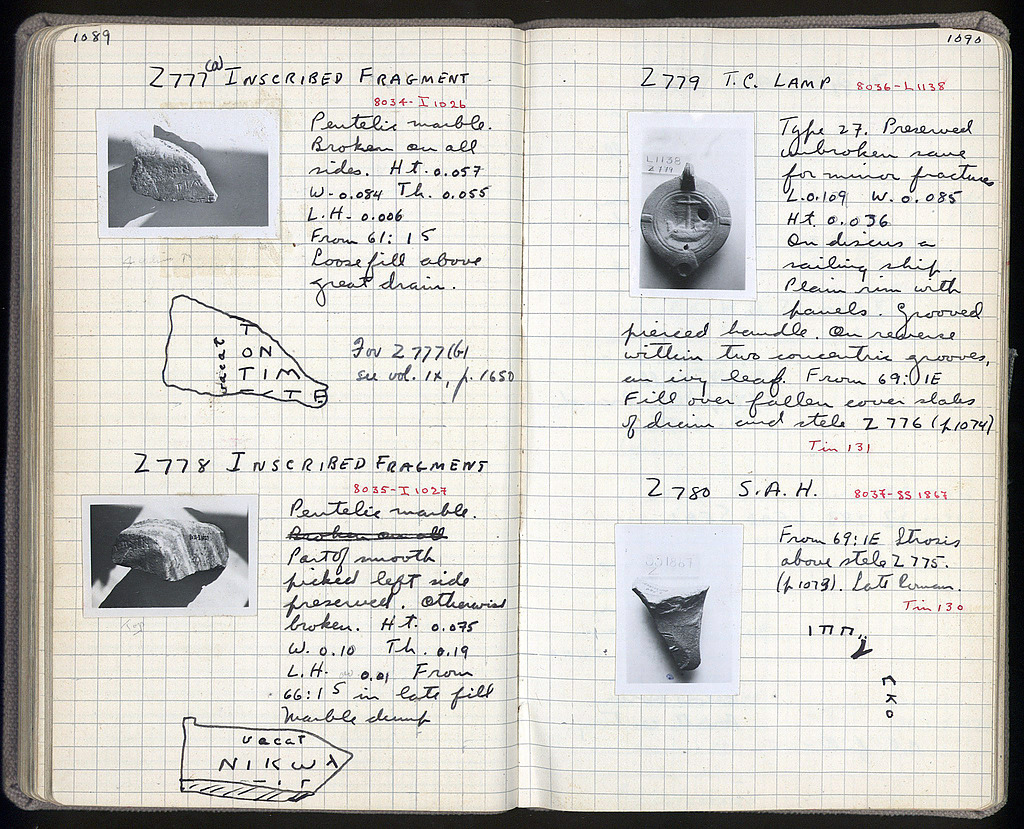 1089
Z 777 (a) INSCRIBED FRAGMENT
8034-I 1026
Pentelic marble.
Broken on all
sides. Ht. 0.057
W- 0.084 Th. 0.055
L.H- 0.006
From 61:15
Loose fill above
great drain.
T
ON
TIM
TE
vacat
For Z 777(b)
see vol. IX, p. 1650
Z 778 INSCRIBED FRAGMENT
8035-I 1027
Pentelic marble.
Broken on all
Part of smooth
picked left side
preserved. Otherwise
broken. Ht. 0.075
W. 0.10 Th. 0.19
L.H- 0.01 From
66:15 in late fill
Marble dump
vacat
ΝΙΚωλ
1090
Z 779 T.C. LAMP 8036-L1138
L1138
Z 779
Type 27. Preserved
unbroken save
for minor fractures
L. 0.109 W. 0.085
Ht. 0.036
On discus a
sailing ship.
Plain rim with
panels. Grooved
pierced handle. On reverse
within two concentric grooves,
an ivy leaf. From 69:1E
Fill over fallen cover slabs
of drain and stele Z 776 (p1074)
Tin 131
Z 780 S.A.H. 8037-SS 1867
From 69:1E Strosis
above stele Z 775.
(p1073). Late Roman.
Tin 130
ΕΚΟ